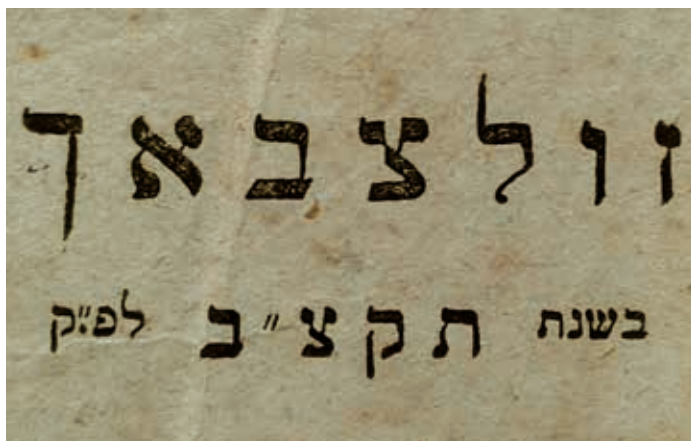 זולצבאך
בשנת תקצ״ב לפ״ק